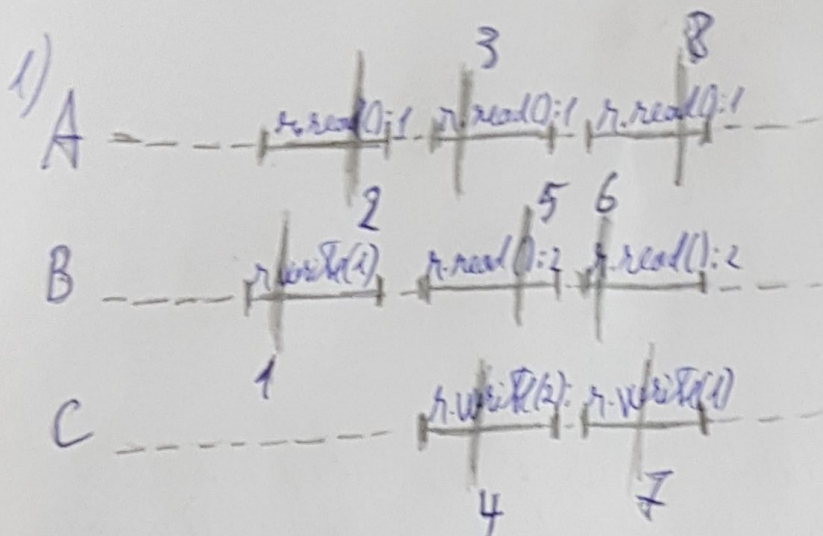 1)
3 8
A r.read():1 r.read():1 r.read():1
2 5 6
B r.write(1) r.read():2 r.read():2
1
C r.write(2): r.write(1)
4 7